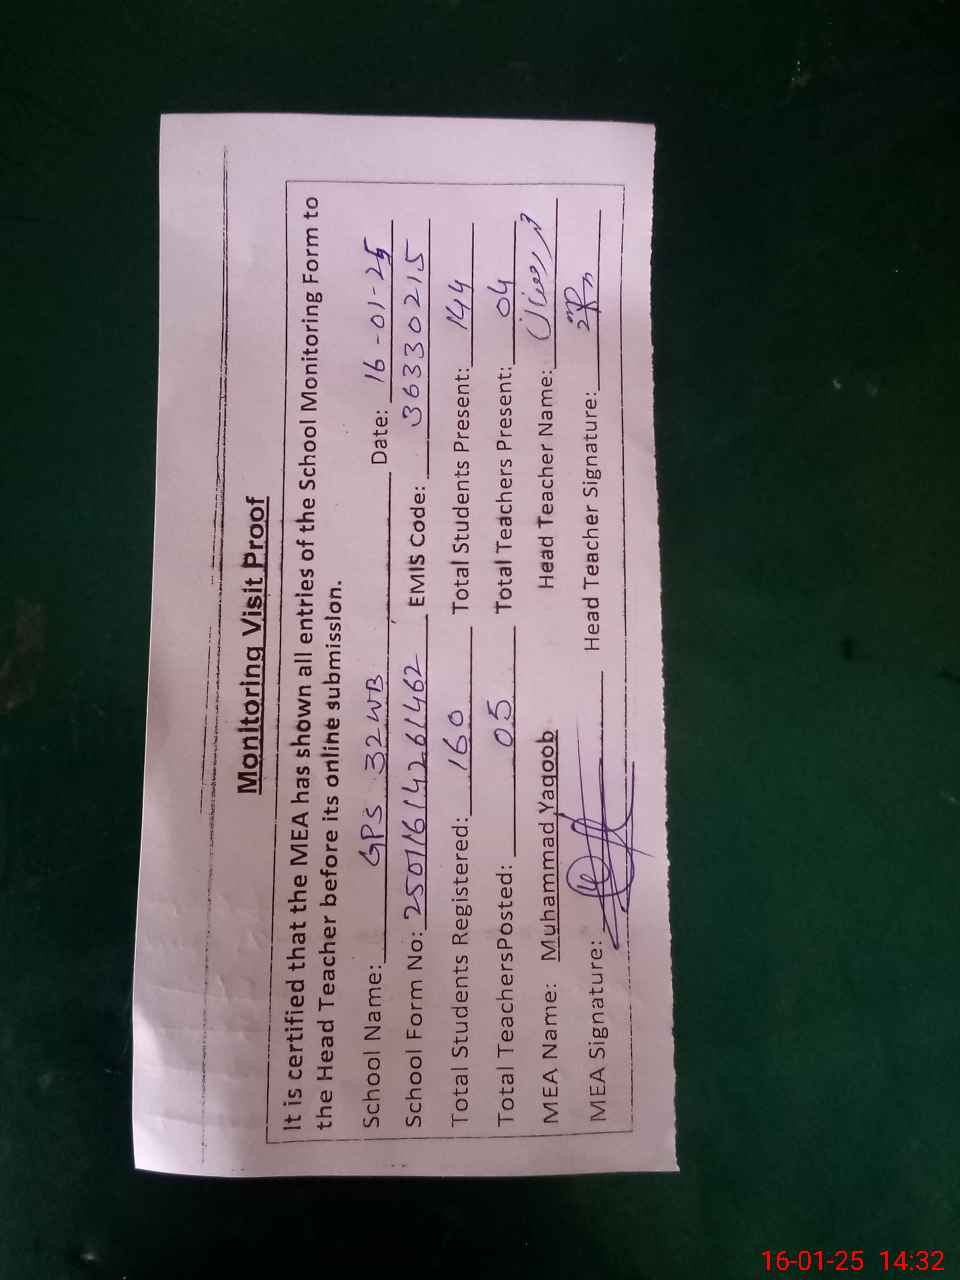 Monitoring Visit Proof
It is certified that the MEA has shown all entries of the School Monitoring Form to
the Head Teacher before its online submission.
School Name: GPS 32WB Date: 16-01-25
School Form No: 25011614261462 EMIS Code: 36330215
Total Students Registered: 160 Total Students Present: 144
Total TeachersPosted: 05 Total Teachers Present: 04
MEA Name: Muhammad Yaqoob Head Teacher Name:
MEA Signature: Head Teacher Signature:
16-01-25 14:32